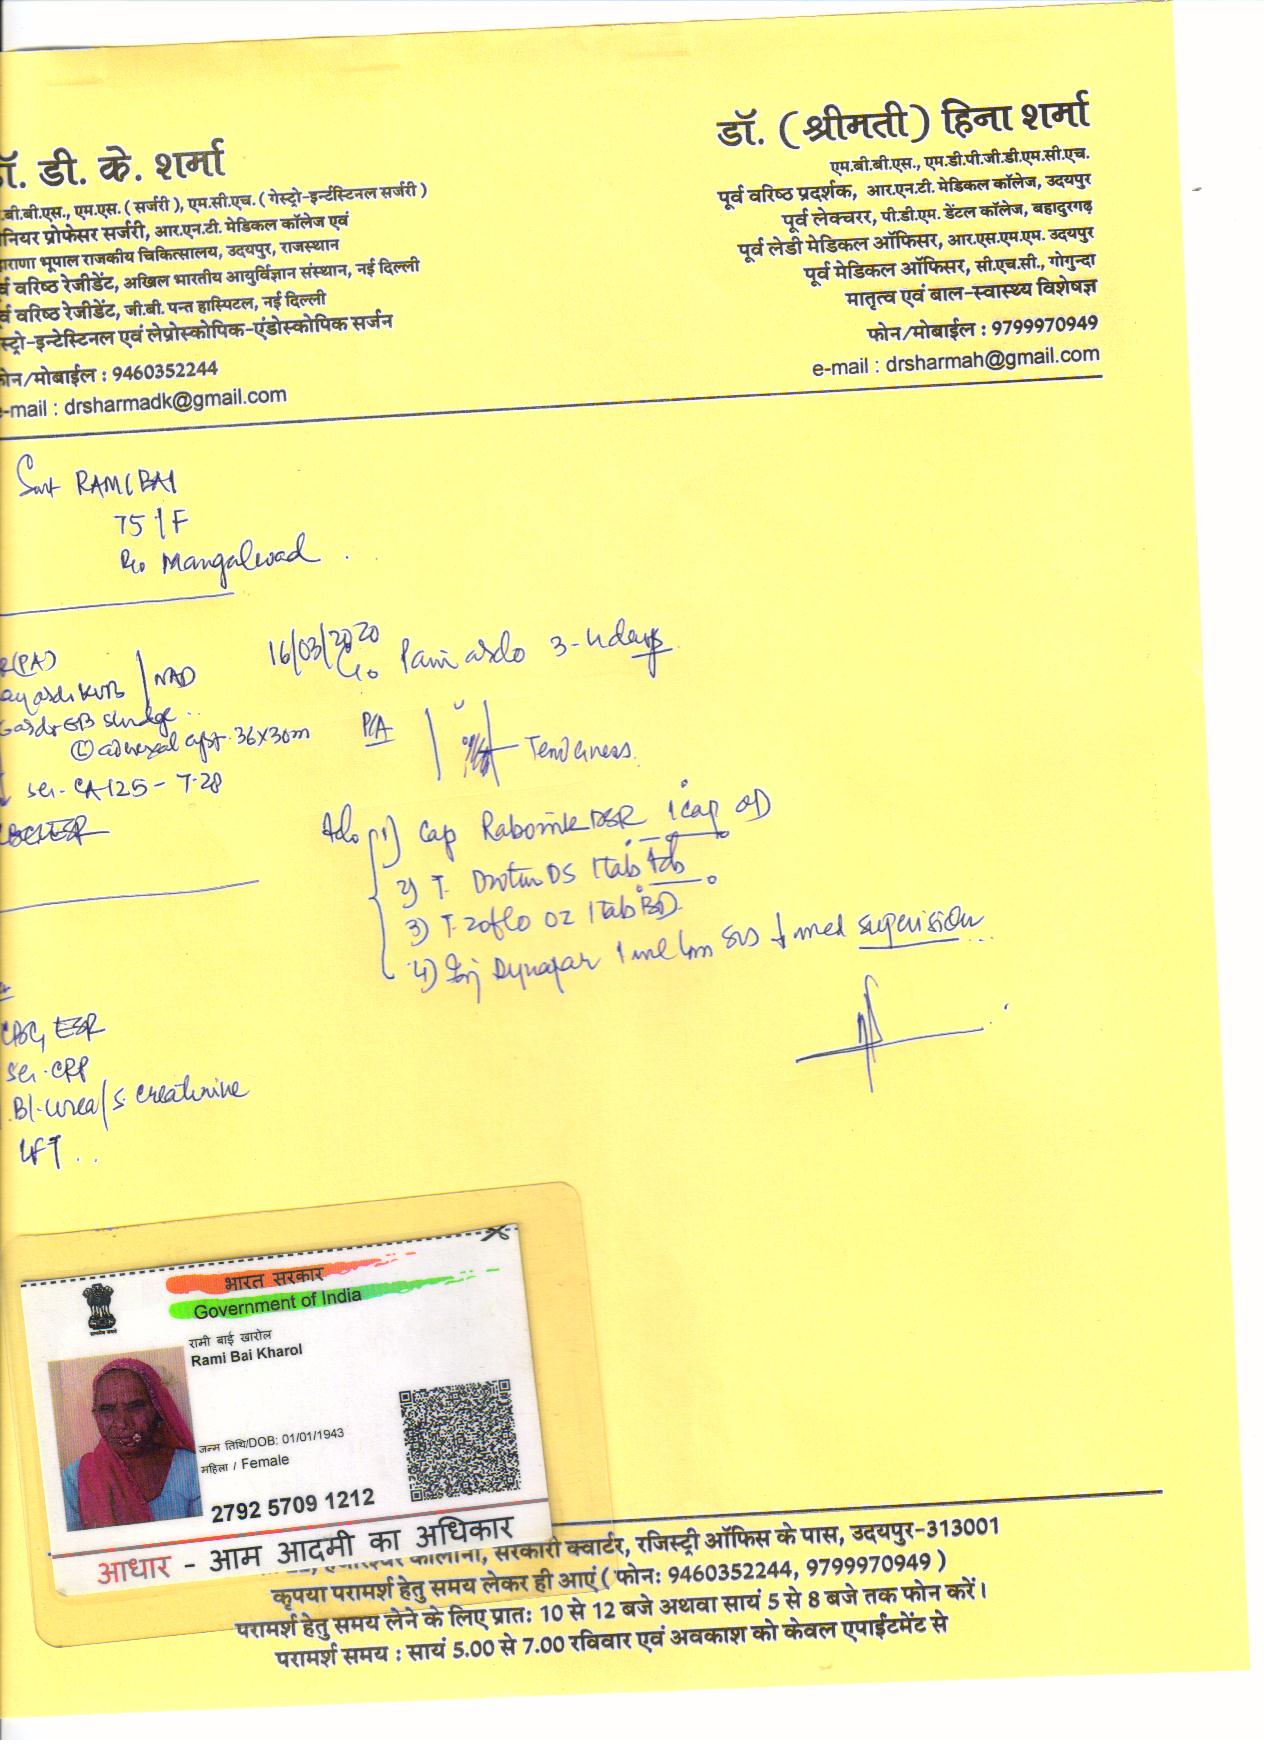 डॉ. डी. के. शर्मा
.बी.बी.एस., एम.एस. ( सर्जरी ), एम.सी.एच. ( गेस्ट्रो-इन्टेंस्टिनल सर्जरी )
नियर प्रोफेसर सर्जरी, आर.एन.टी. मेडिकल कॉलेज एवं
हाराणा भूपाल राजकीय चिकित्सालय, उदयपुर, राजस्थान
र्व वरिष्ठ रेजीडेंट, अखिल भारतीय आयुर्विज्ञान संस्थान, नई दिल्ली
र्व वरिष्ठ रेजीडेंट, जी.बी. पन्त हास्पिटल, नई दिल्ली
स्ट्रो-इन्टेस्टिनल एवं लेप्रोस्कोपिक-एंडोस्कोपिक सर्जन
फोन/मोबाईल : 9460352244
e-mail : drsharmadk@gmail.com
डॉ. ( श्रीमती ) हिना शर्मा
एम.बी.बी.एस., एम.डी.पी.जी.डी.एम.सी.एच.
पूर्व वरिष्ठ प्रदर्शक, आर.एन.टी. मेडिकल कॉलेज, उदयपुर
पूर्व लेक्चरर, पी.डी.एम. डेंटल कॉलेज, बहादुरगढ़
पूर्व लेडी मेडिकल ऑफिसर, आर.एस.एम.एम. उदयपुर
पूर्व मेडिकल ऑफिसर, सी.एच.सी., गोगुन्दा
मातृत्व एवं बाल-स्वास्थ्य विशेषज्ञ
फोन/मोबाईल : 9799970949
e-mail : drsharmah@gmail.com
Smt RAMI BAI
75/F
R/o Mangalwad
(PA)
KUB NAD
GB sludge
(L) adnexal cyst 36x30m
ser. CA-125 - 7.28
CBC, ESR
16/03/2020
C/o Pain 3-4 days
P/A
Tenderness
Adv (1) Cap DSR 1 cap OD
2) T. Drotin DS 1 tab tds
3) T. Zoflo OZ 1 tab BD
4) Inj Dynapar 1 ml Im SOS med supervision
CBC, ESR
ser. CRP
Bl. urea/s. creatinine
LFT
भारत सरकार
Government of India
रामी बाई खारोल
Rami Bai Kharol
जन्म तिथि/DOB: 01/01/1943
महिला / Female
2792 5709 1212
आधार - आम आदमी का अधिकार
कालोनी, सरकारी क्वार्टर, रजिस्ट्री ऑफिस के पास, उदयपुर-313001
कृपया परामर्श हेतु समय लेकर ही आएं ( फोन: 9460352244, 9799970949 )
परामर्श हेतु समय लेने के लिए प्रात: 10 से 12 बजे अथवा सायं 5 से 8 बजे तक फोन करें।
परामर्श समय : सायं 5.00 से 7.00 रविवार एवं अवकाश को केवल एपाईटमेंट से